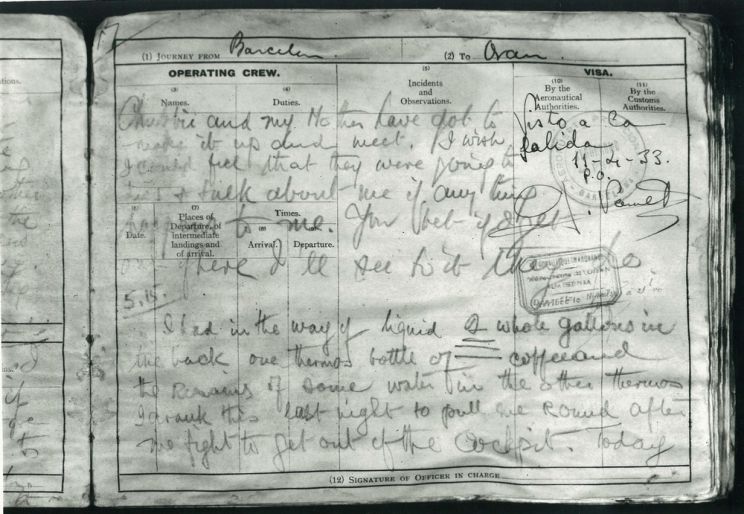 (1) JOURNEY FROM Barcelona (2) TO Oran
OPERATING CREW.
(5)
Incidents
and
Observations.
VISA.
(3)
Names.
(4)
Duties.
(10)
By the
Aeronautical
Authorities.
(11)
By the
Customs
Authorities.
Chubbie and my Mother have got to
make it up and meet. I wish
I could feel that they were going to
& talk about me if any thing
happens to me. You bet if I get
over there I'll see to it they do
Visto a la
salida
11-4-33.
P.O.
(6)
Date.
(7)
Places of
Departure, of
intermediate
landings and
of arrival.
Times.
(8)
Arrival.
Departure.
5.15.
I had in the way of liquid 2 whole gallons in
the back one thermos bottle of coffee and
the remains of some water in the other thermos
I drank this last night to pull me round after
me fight to get out of the cockpit. Today
(12) SIGNATURE OF OFFICER IN CHARGE